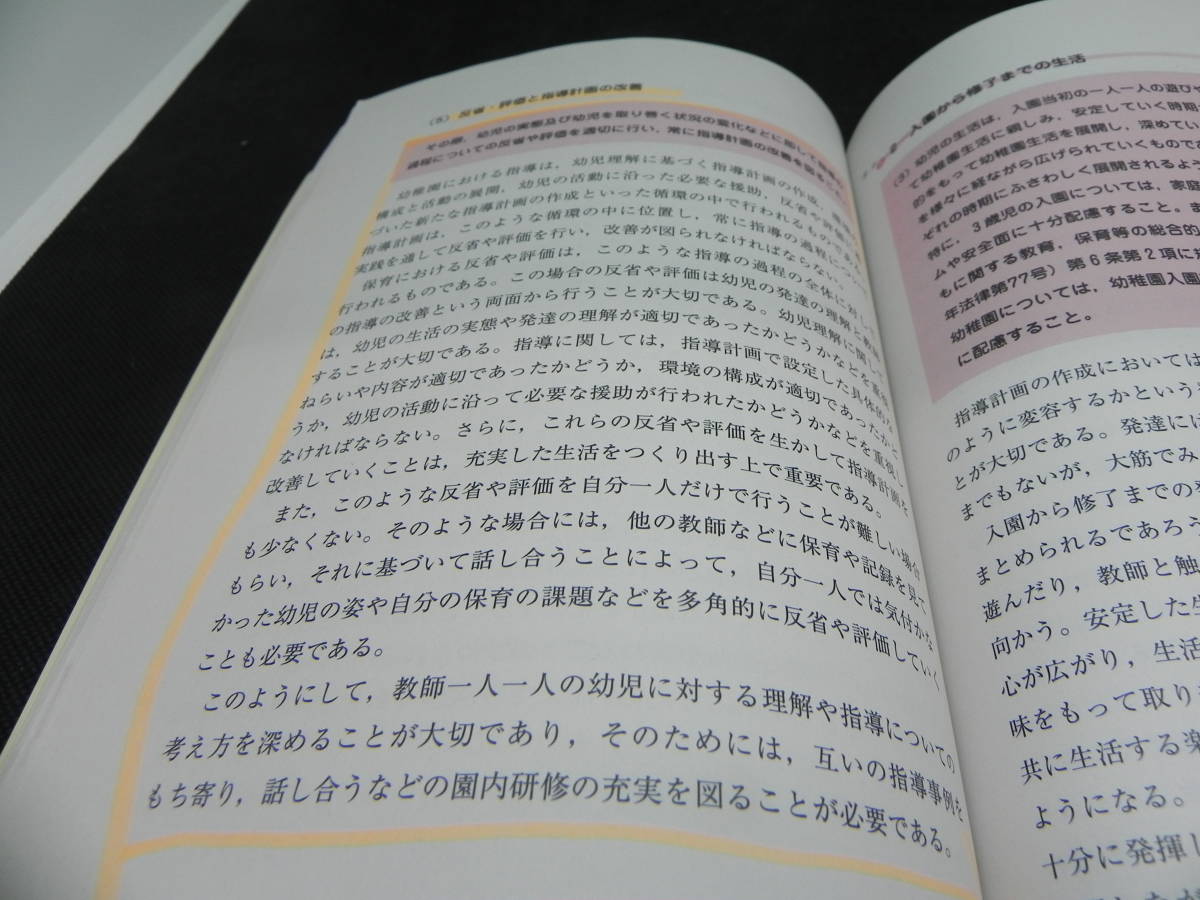 (5) 反省・評価と指導計画の改善
その際，幼児の実態及び幼児を取り巻く状況の変化などに即して
過程についての反省や評価を適切に行い，常に指導計画の改善を図ること
幼稚園における指導は，幼児理解に基づく指導計画の作成，環境の
構成と活動の展開，幼児の活動に沿った必要な援助，反省や評価に
づいた新たな指導計画の作成といった循環の中で行われるものである
指導計画は，このような循環の中に位置し，常に指導の過程につい
実践を通して反省や評価を行い，改善が図られなければならない。
保育における反省や評価は，このような指導の過程の全体に対して
行われるものである。この場合の反省や評価は幼児の発達の理解と教師
の指導の改善という両面から行うことが大切である。幼児理解に関して
は，幼児の生活の実態や発達の理解が適切であったかどうかなどを重視
することが大切である。指導に関しては，指導計画で設定した具体的な
ねらいや内容が適切であったかどうか，環境の構成が適切であったかど
うか，幼児の活動に沿って必要な援助が行われたかどうかなどを重視し
なければならない。さらに，これらの反省や評価を生かして指導計画を
改善していくことは，充実した生活をつくり出す上で重要である。
また，このような反省や評価を自分一人だけで行うことが難しい場合
も少なくない。そのような場合には，他の教師などに保育や記録を見て
もらい，それに基づいて話し合うことによって，自分一人では気付かな
かった幼児の姿や自分の保育の課題などを多角的に反省や評価していく
ことも必要である。
このようにして，教師一人一人の幼児に対する理解や指導についての
考え方を深めることが大切であり，そのためには，互いの指導事例を
もち寄り，話し合うなどの園内研修の充実を図ることが必要である。
入園から修了までの生活
(3) 幼児の生活は，入園当初の一人一人の遊びや
て幼稚園生活に親しみ，安定していく時期
的をもって幼稚園生活を展開し，深めてい
を様々に経ながら広げられていくものであ
ぞれの時期にふさわしく展開されるよ
特に，3歳児の入園については，家庭
ムや安全面に十分配慮すること。ま
もに関する教育，保育等の総合的
年法律第77号）第6条第2項に
幼稚園については，幼稚園入園
に配慮すること。
指導計画の作成においては
のように変容するかという
とが大切である。発達には
までもないが，大筋でみ
入園から修了までの
まとめられるであろう
遊んだり，教師と触
向かう。安定した
心が広がり，生活
味をもって取り
共に生活する楽
ようになる。
十分に発揮し